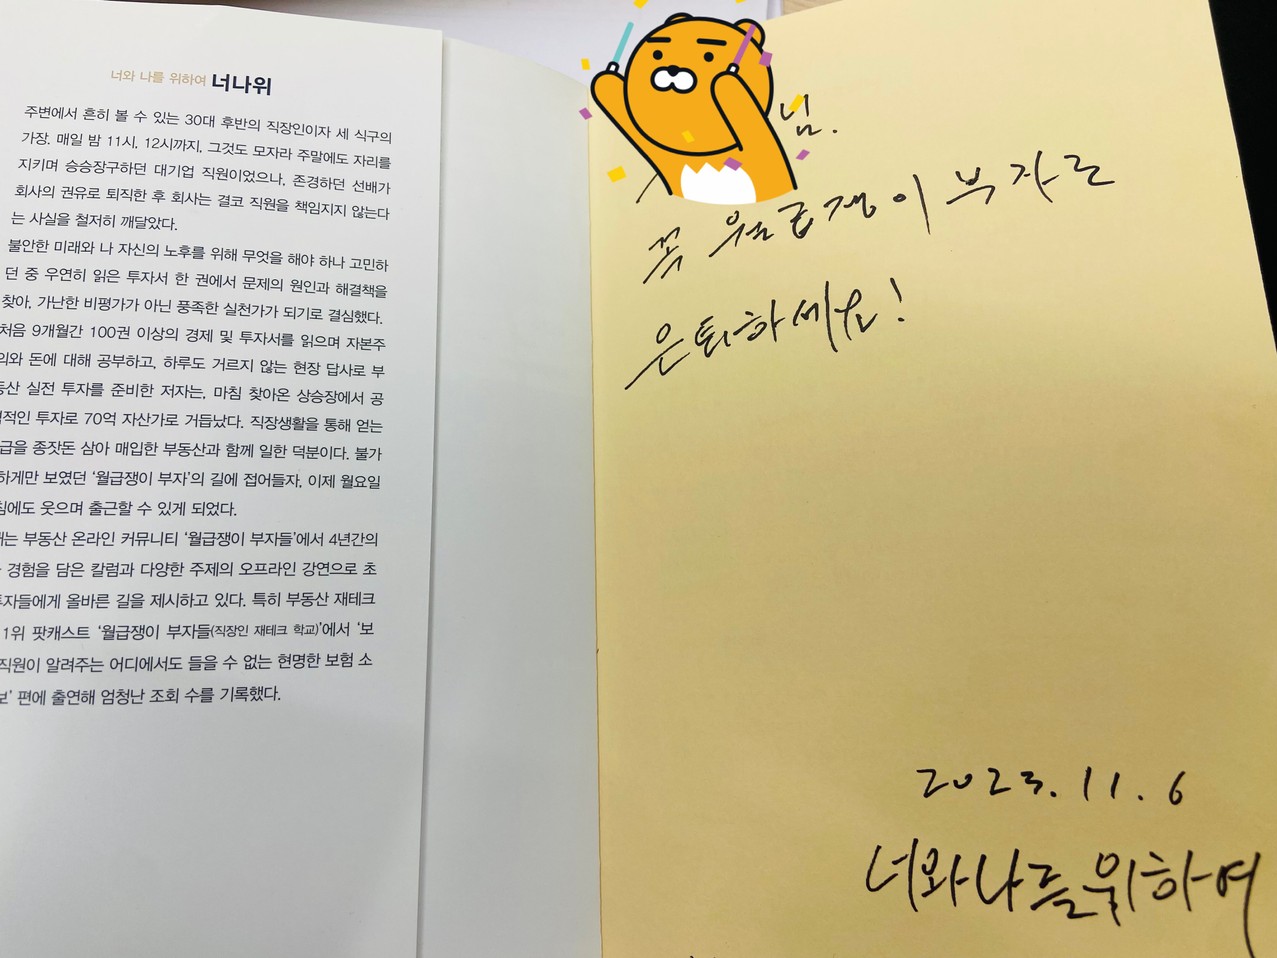 너와 나를 위하여 너나위
주변에서 흔히 볼 수 있는 30대 후반의 직장인이자 세 식구의
가장. 매일 밤 11시, 12시까지, 그것도 모자라 주말에도 자리를
지키며 승승장구하던 대기업 직원이었으나, 존경하던 선배가
회사의 권유로 퇴직한 후 회사는 결코 직원을 책임지지 않는다
는 사실을 철저히 깨달았다.
불안한 미래와 나 자신의 노후를 위해 무엇을 해야 하나 고민하
던 중 우연히 읽은 투자서 한 권에서 문제의 원인과 해결책을
찾아, 가난한 비평가가 아닌 풍족한 실천가가 되기로 결심했다.
처음 9개월간 100권 이상의 경제 및 투자서를 읽으며 자본주
의와 돈에 대해 공부하고, 하루도 거르지 않는 현장 답사로 부
동산 실전 투자를 준비한 저자는, 마침 찾아온 상승장에서 공
격적인 투자로 70억 자산가로 거듭났다. 직장생활을 통해 얻는
급을 종잣돈 삼아 매입한 부동산과 함께 일한 덕분이다. 불가
하게만 보였던 ‘월급쟁이 부자’의 길에 접어들자, 이제 월요일
침에도 웃으며 출근할 수 있게 되었다.
재는 부동산 온라인 커뮤니티 ‘월급쟁이 부자들’에서 4년간의
경험을 담은 칼럼과 다양한 주제의 오프라인 강연으로 초
투자들에게 올바른 길을 제시하고 있다. 특히 부동산 재테크
1위 팟캐스트 ‘월급쟁이 부자들(직장인 재테크 학교)’에서 ‘보
직원이 알려주는 어디에서도 들을 수 없는 현명한 보험 소
보’ 편에 출연해 엄청난 조회 수를 기록했다.
님.
꼭 월급쟁이 부자로
은퇴하세요!
2023. 11. 6
너와나를위하여